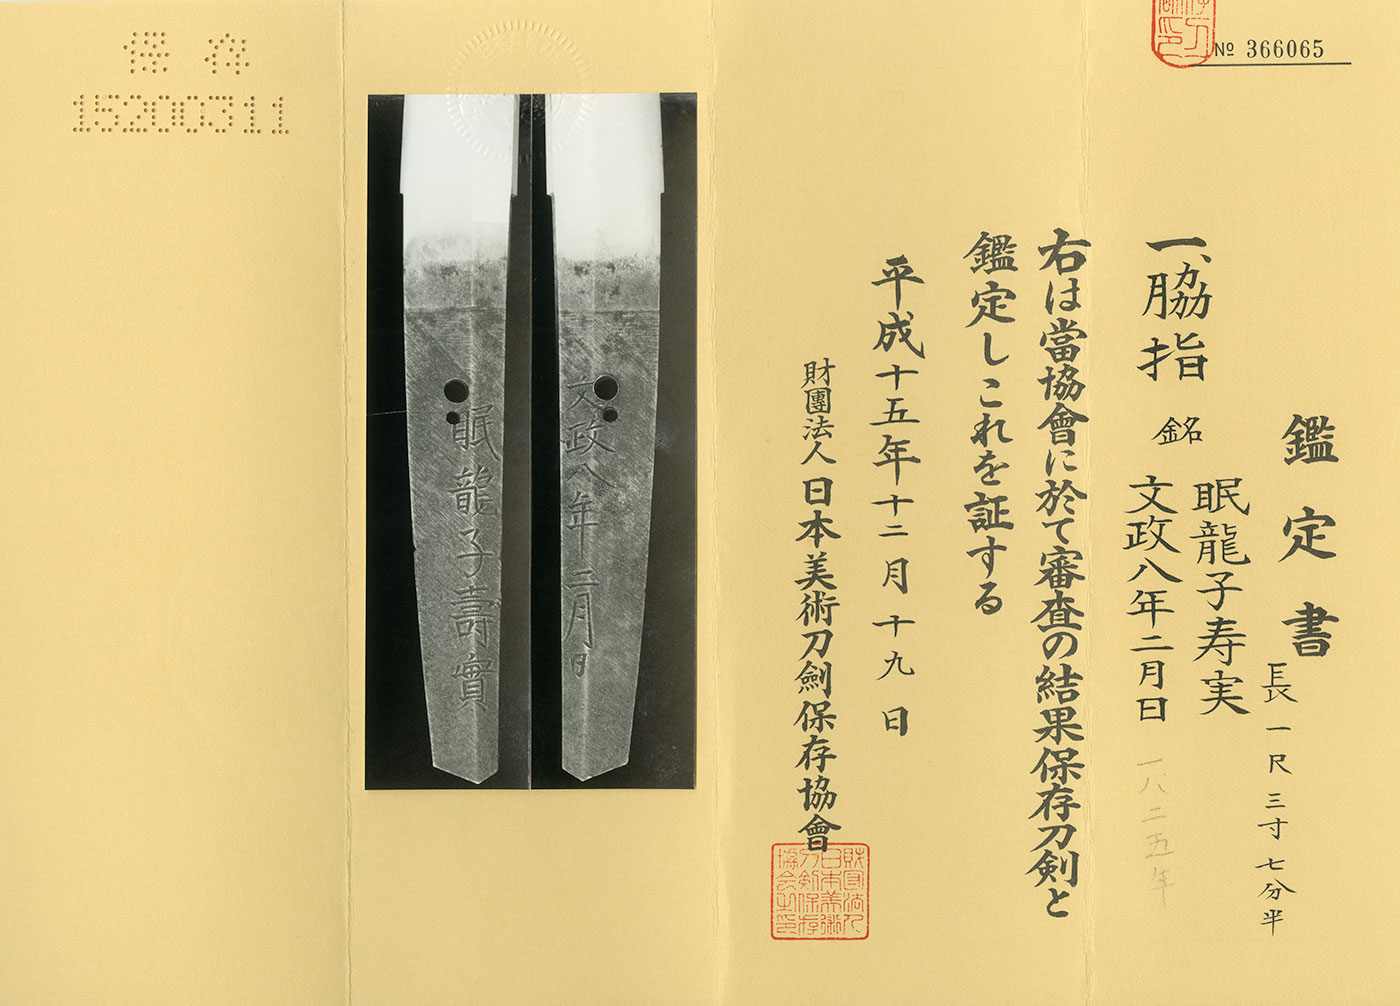 № 366065
鑑定書
長一尺三寸七分半
一、脇指 銘 眠龍子寿実
文政八年二月日
一八二五年
右は當協會に於て審査の結果保存刀剣と
鑑定しこれを証する
平成十五年十二月十九日
財團法人日本美術刀劍保存協會
財団法人日本美術刀剣保存協会之印
文政八年二月日
眠龍子壽實
保存
15200311